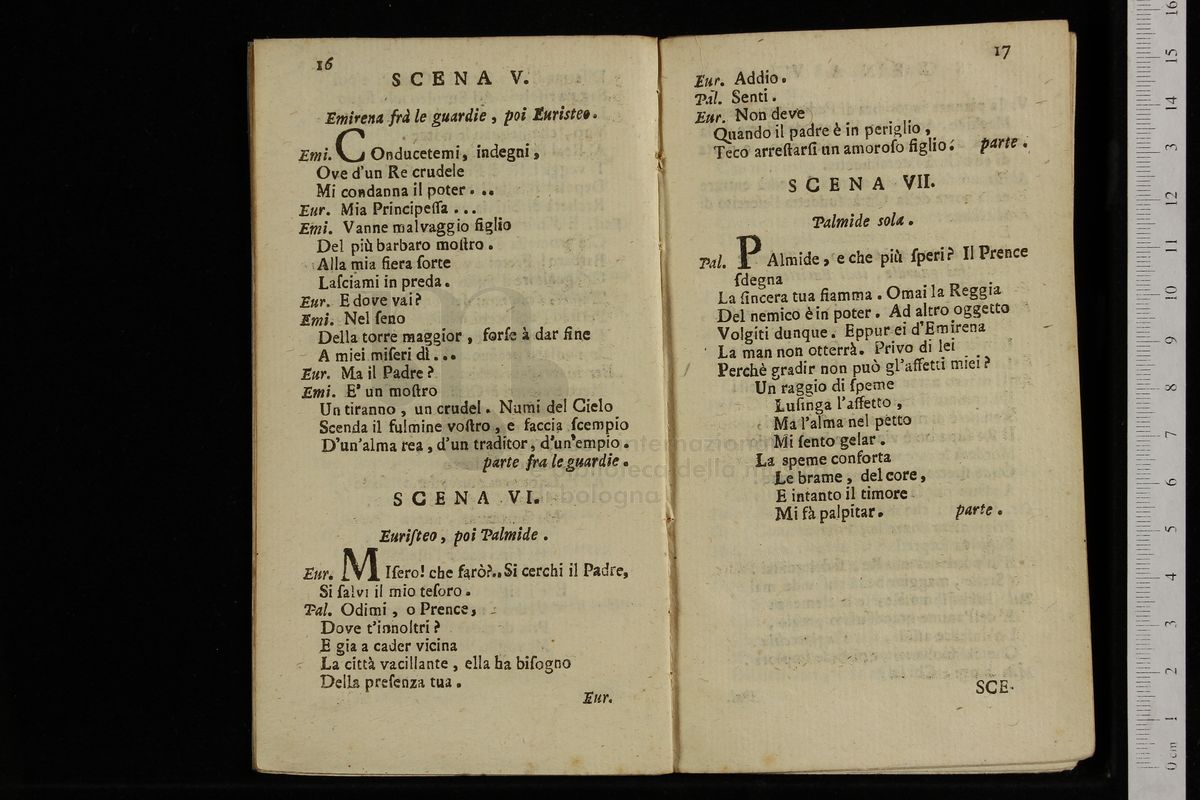 16
SCENA V.
Emirena frà le guardie, poi Euristeo.
Emi. COnducetemi, indegni,
Ove d'un Re crudele
Mi condanna il poter...
Eur. Mia Principeſſa...
Emi. Vanne malvaggio figlio
Del più barbaro moſtro.
Alla mia fiera ſorte
Laſciami in preda.
Eur. E dove vai?
Emi. Nel ſeno
Della torre maggior, forſe à dar fine
A miei miſeri dì...
Eur. Ma il Padre?
Emi. E' un moſtro
Un tiranno, un crudel. Numi del Cielo
Scenda il fulmine voſtro, e faccia ſcempio
D'un'alma rea, d'un traditor, d'un'empio.
parte fra le guardie.
SCENA VI.
Euriſteo, poi Palmide.
Eur. MIſero! che farò?..Si cerchi il Padre,
Si ſalvi il mio teſoro.
Pal. Odimi, o Prence,
Dove t'innoltri?
E gia a cader vicina
La città vacillante, ella ha biſogno
Della preſenza tua.
Eur.
17
Eur. Addio.
Pal. Senti.
Eur. Non deve
Quando il padre è in periglio,
Teco arreſtarſi un amoroſo figlio. parte.
SCENA VII.
Palmide sola.
Pal. PAlmide, e che più ſperi? Il Prence
ſdegna
La ſincera tua fiamma. Omai la Reggia
Del nemico è in poter. Ad altro oggetto
Volgiti dunque. Eppur ei d'Emirena
La man non otterrà. Privo di lei
Perchè gradir non può gl'affetti miei?
Un raggio di ſpeme
Luſinga l'affetto,
Ma l'alma nel petto
Mi ſento gelar.
La ſpeme conforta
Le brame, del core,
E intanto il timore
Mi fà palpitar. parte.
SCE-